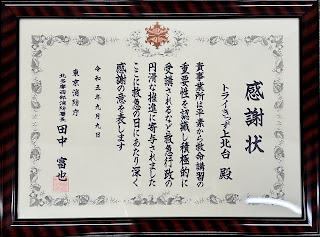 感謝状
トライきっず上北台 殿
貴事業所は平素から救命講習の
重要性を認識し積極的に
受講されるなど救急行政の
円滑な推進に寄与されました
ここに救急の日にあたり深く
感謝の意を表します
令和五年九月九日
東京消防庁
北多摩西部消防署長
田中 富也